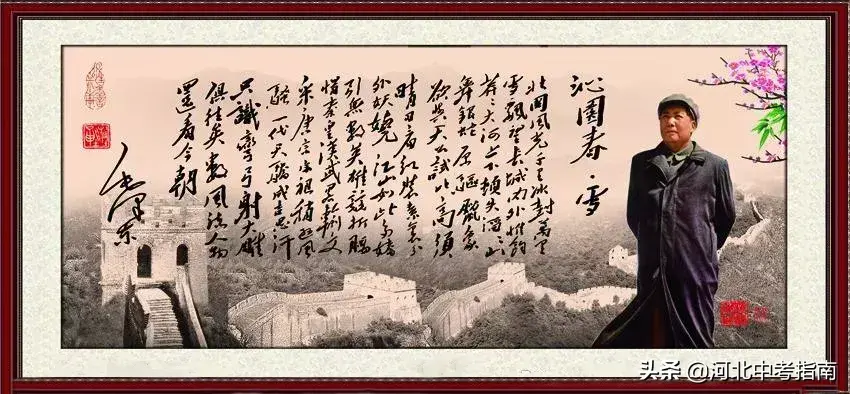 沁園春·雪
北国風光千里冰封万里
雪飘望長城内外惟餘
莽々大河上下頓失滔々山
舞銀蛇原驱腊象
欲与天公試比高須
晴日看红装素裹分
外妖娆江山如此多娇
引無數英雄競折腰
惜秦皇漢武略輸文
采唐宗宋祖稍逊風
騷一代天驕成吉思汗
只識彎弓射大雕
俱往矣數風流人物
還看今朝
毛泽东
头条 @河北中考指南